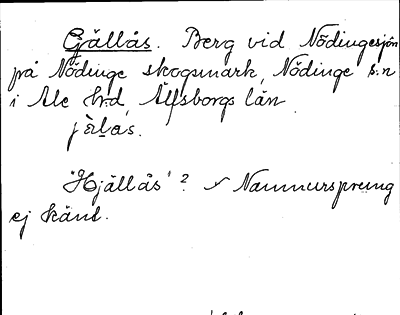 Gjällås. Berg vid Nödingesjön
på Nödinge skogsmark, Nödinge s:n
i Ale hd, Älfsborgs län
"Hjällås" ? Namnursprung
ej känt.